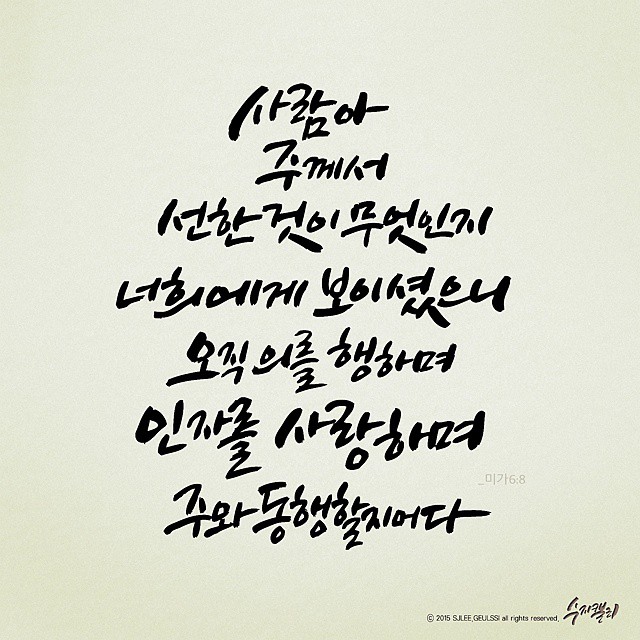 사람아
주께서
선한 것이 무엇인지
너희에게 보이셨으니
오직 의를 행하며
인자를 사랑하며
_미가6:8
주와 동행할지어다
ⓒ 2015 SJLEE,GEULSSI all rights reserved,
수지캘리